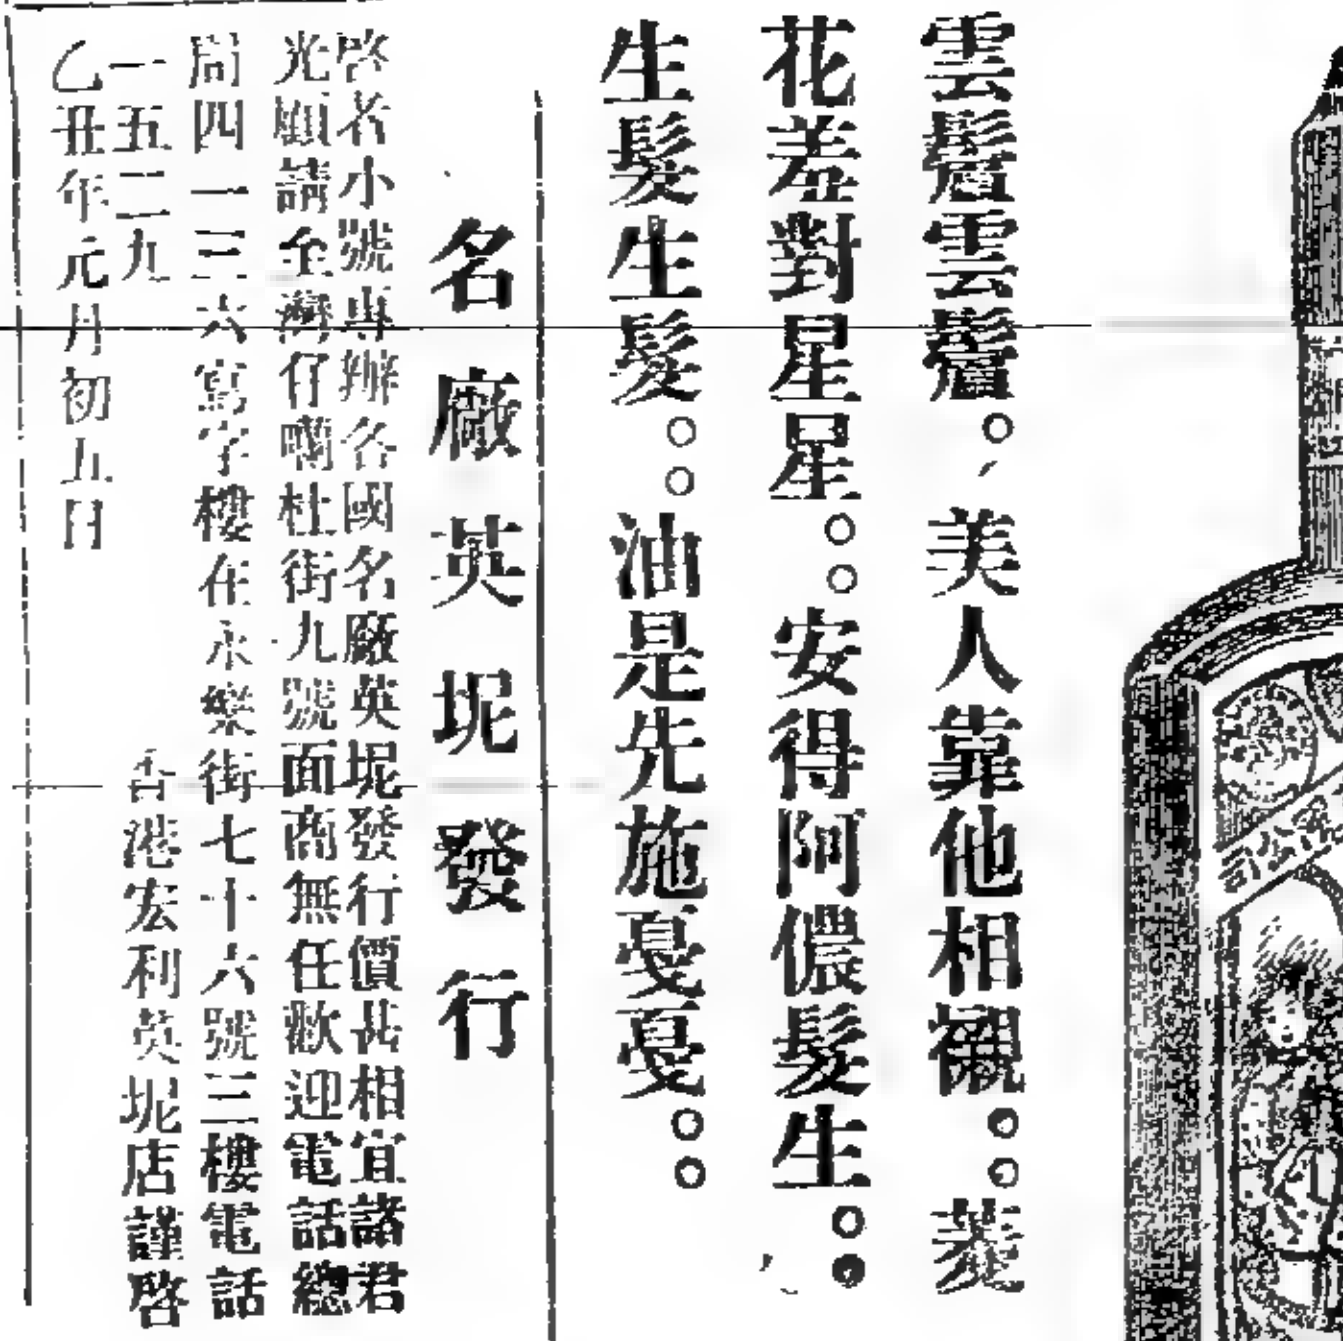 雲鬟雲鬟。美人靠他相襯。。菱
花羞對星星。。安得阿儂髮生。。
生髮生髮。。油是先施戞戞。。
名廠英坭發行
啓者小號專辦各國名廠英坭發行價甚相宜諸君
光顧請至灣仔囒杜街九號面商無任歡迎電話總
局四一三六寫字樓在永樂街七十六號三樓電話
一五二九
香港宏利英坭店謹啓
乙丑年元月初五日
公司